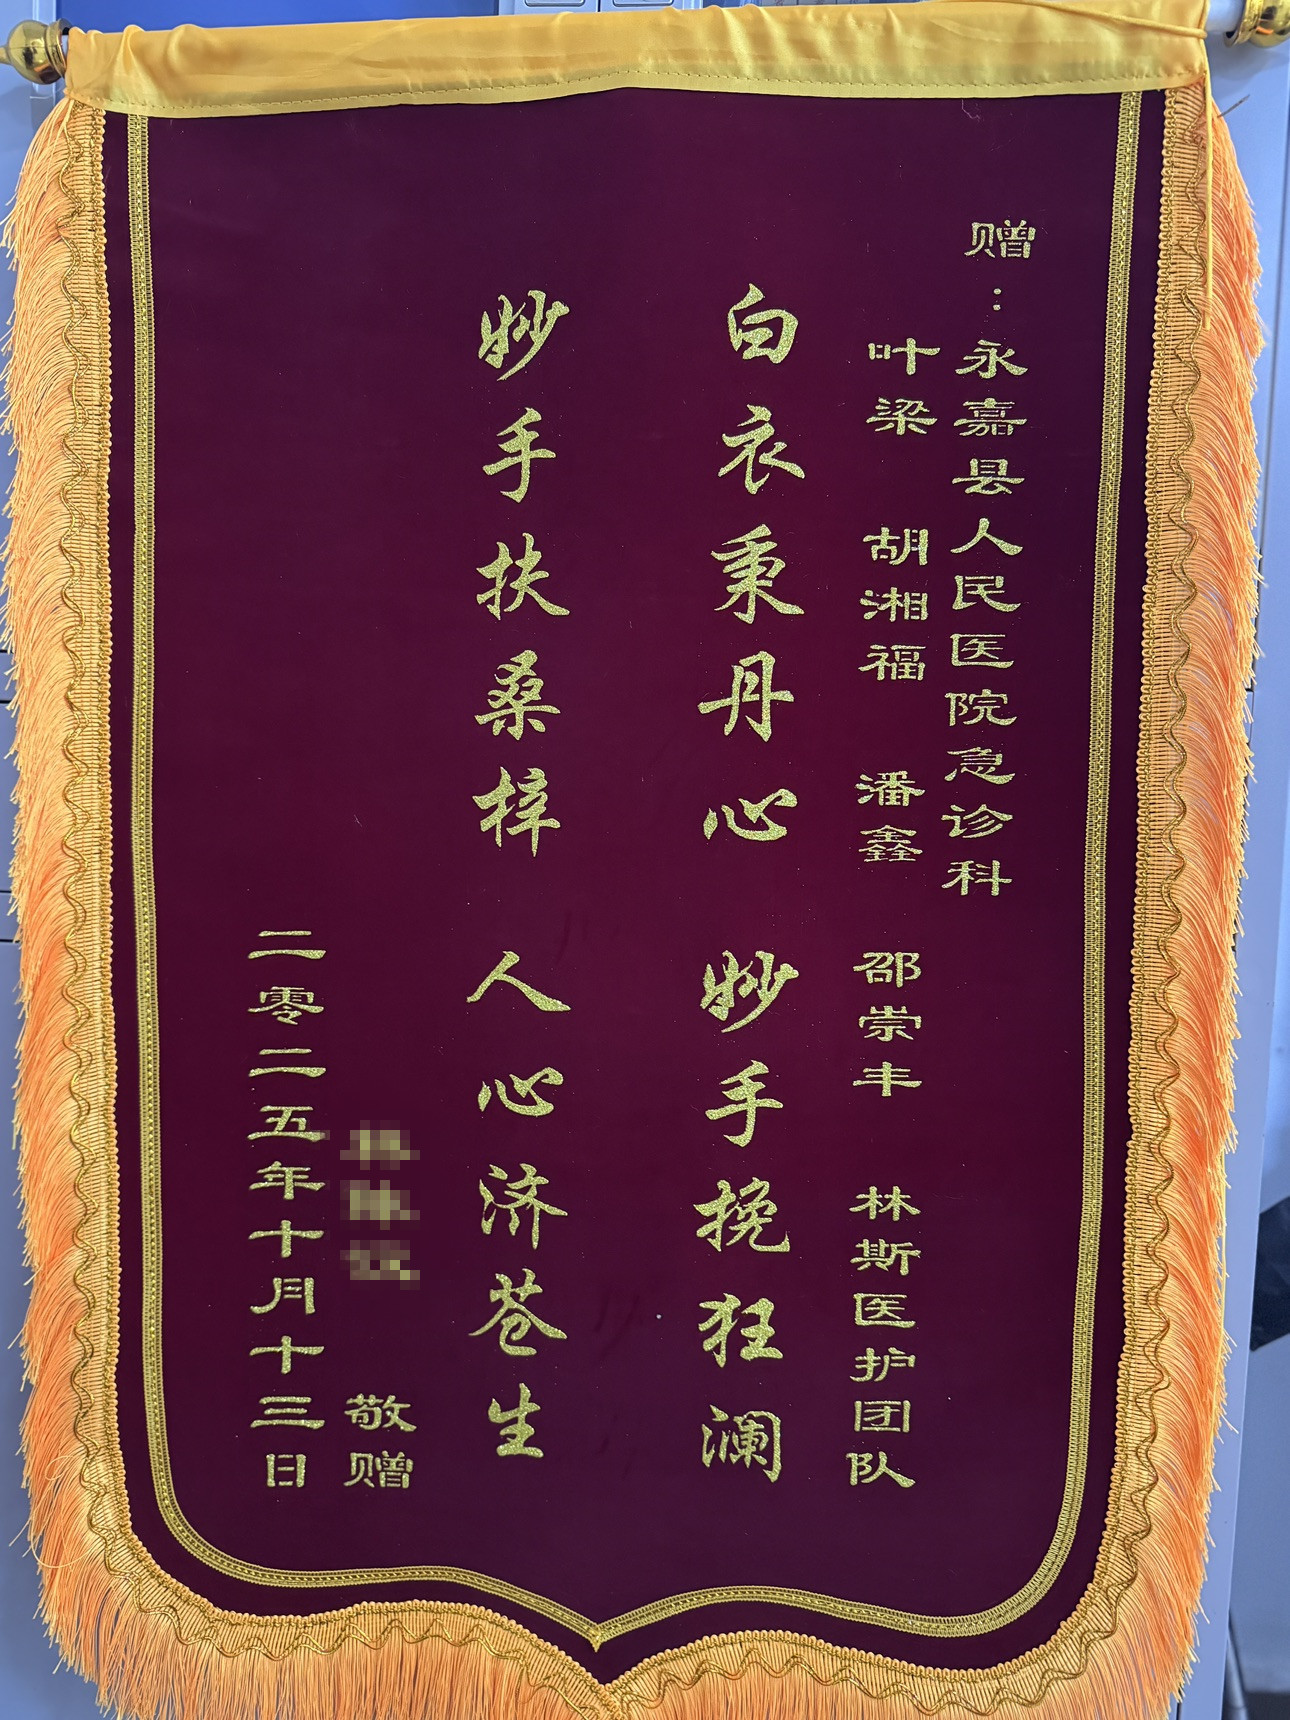 赠：永嘉县人民医院急诊科
叶梁 胡湘福 潘鑫 邵崇丰 林斯医护团队
白衣秉丹心 妙手挽狂澜
妙手扶桑梓 人心济苍生
敬赠
二零二五年十月十三日